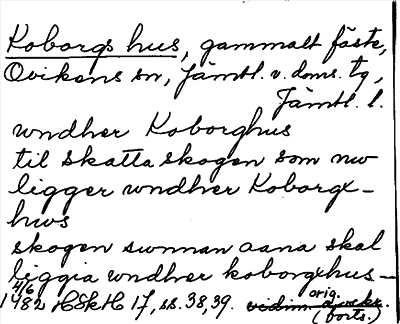 Koborgs hus, gammalt fäste,
Ovikens sn, Jämtl. v. doms. tg,
Jämtl. l.
wndher Koborghus
til skatta skogen som nw
ligger wndher Koborgx-
hws
skogen swnnan aana skal
liggia wndher koborgxhus-
4/6 orig.
1482 HSkH 17, ss. 38, 39. (forts.)